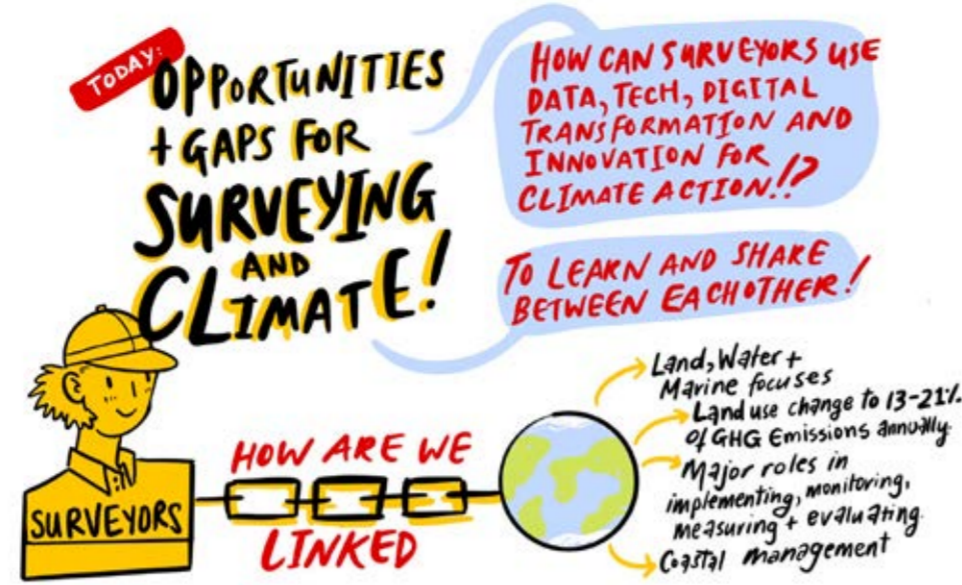 TODAY:
OPPORTUNITIES
+ GAPS FOR
SURVEYING
AND
CLIMATE!
HOW CAN SURVEYORS USE
DATA, TECH, DIGITAL
TRANSFORMATION AND
INNOVATION FOR
CLIMATE ACTION!!?
TO LEARN AND SHARE
BETWEEN EACHOTHER!
SURVEYORS
HOW ARE WE
LINKED
Land, Water +
Marine focuses
Land use change to 13-21%
of GHG Emissions annually
Major roles in
implementing, monitoring,
measuring + evaluating.
Coastal management